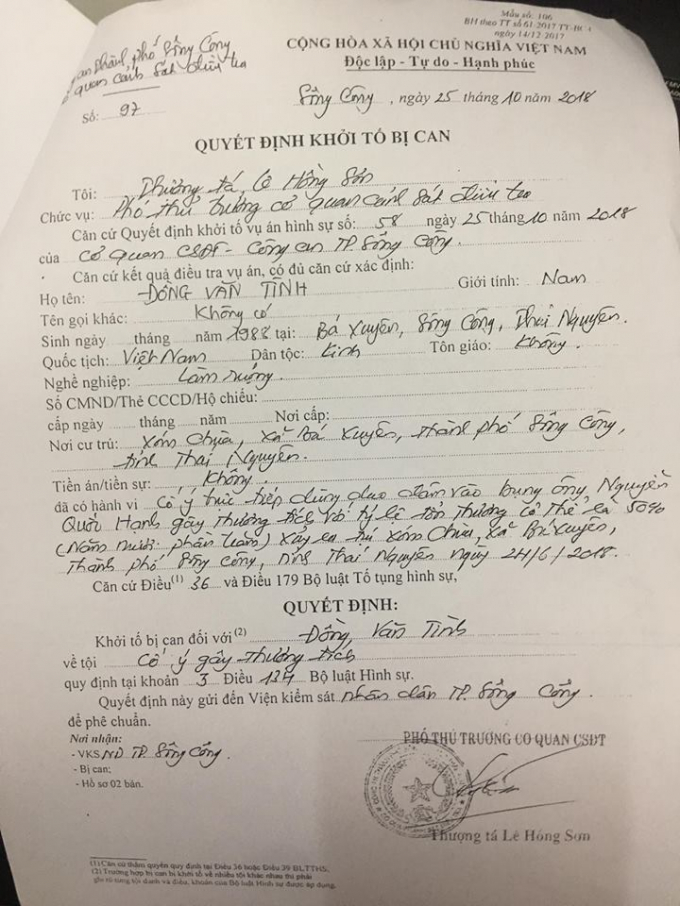 Mẫu số: 106
BH theo TT số 61/2017/TT-BCA
ngày 14/12/2017
CỘNG HÒA XÃ HỘI CHỦ NGHĨA VIỆT NAM
Độc lập - Tự do - Hạnh phúc
an thành phố Sông Công
ơ quan cảnh sát điều tra
Số: 97
Sông Công, ngày 25 tháng 10 năm 2018
QUYẾT ĐỊNH KHỞI TỐ BỊ CAN
Tôi: Thượng tá, Lê Hồng Sơn
Chức vụ: Phó thủ trưởng cơ quan cảnh sát điều tra
Căn cứ Quyết định khởi tố vụ án hình sự số: 58 ngày 25 tháng 10 năm 2018
của Cơ quan CSĐT - Công an TP. Sông Công.
Căn cứ kết quả điều tra vụ án, có đủ căn cứ xác định:
Họ tên: ĐỒNG VĂN TÌNH Giới tính: Nam
Tên gọi khác: Không có
Sinh ngày tháng năm 1988 tại: Bá Xuyên, Sông Công, Thái Nguyên.
Quốc tịch: Việt Nam Dân tộc: Kinh Tôn giáo: Không.
Nghề nghiệp: Làm ruộng.
Số CMND/Thẻ CCCD/Hộ chiếu:
cấp ngày tháng năm Nơi cấp:
Nơi cư trú: Xóm Chùa, xã Bá Xuyên, thành phố Sông Công,
tỉnh Thái Nguyên.
Tiền án/tiền sự: Không.
đã có hành vi Cố ý trực tiếp dùng dao đâm vào bụng ông Nguyễn
Quốc Hạnh gây thương tích có tỷ lệ tổn thương cơ thể là 50%
(Năm mươi phần trăm) Xảy ra tại xóm Chùa, xã Bá Xuyên,
Thành phố Sông Công, tỉnh Thái Nguyên ngày 24/6/2018.
Căn cứ Điều(1) 36 và Điều 179 Bộ luật Tố tụng hình sự,
QUYẾT ĐỊNH:
Khởi tố bị can đối với(2) Đồng Văn Tình
về tội Cố ý gây thương tích
quy định tại khoản 3 Điều 134 Bộ luật Hình sự.
Quyết định này gửi đến Viện kiểm sát nhân dân TP. Sông Công.
để phê chuẩn.
Nơi nhận:
- VKSND TP. Sông Công.
- Bị can;
- Hồ sơ 02 bản.
PHÓ THỦ TRƯỞNG CƠ QUAN CSĐT
Thượng tá Lê Hồng Sơn
(1) Căn cứ thẩm quyền quy định tại Điều 36 hoặc Điều 39 BLTTHS;
(2) Trường hợp bị can bị khởi tố về nhiều tội khác nhau thì phải
ghi rõ từng tội danh và điều, khoản của Bộ luật Hình sự được áp dụng.